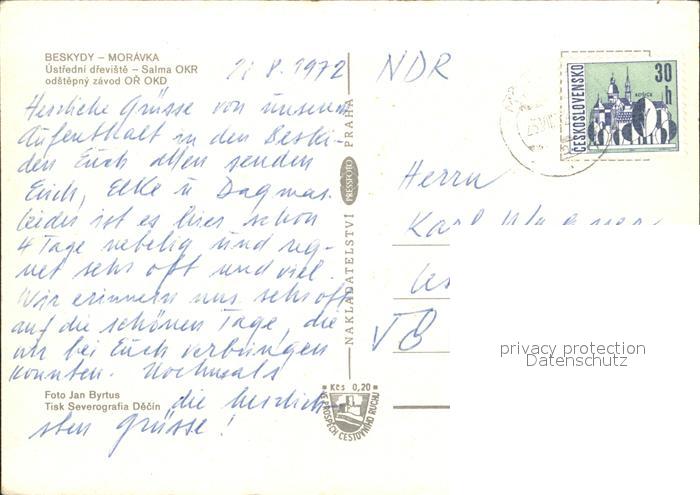 BESKYDY – MORÁVKA
Ústřední dřeviště – Salma OKR
odštěpný závod OŘ OKD
21. 8. 1972
Herzliche Grüsse von unserem
Aufenthalt in den Beski-
den Euch allen senden
Erich, Elke u Dagmar.
Leider ist es hier schon
4 Tage nebelig und reg-
net sehr oft und viel.
Wir erinnern uns sehr oft
auf die schönen Tage, die
wir bei Euch verbringen
konnten. Nochmals
die herzlich-
sten Grüsse!
Foto Jan Byrtus
Tisk Severografia Děčín
NAKLADATELSTVÍ PRESSFOTO PRAHA
Kčs 0,20
VE PROSPĚCH CESTOVNÍHO RUCHU
NDR
ČESKOSLOVENSKO
30 h
KOŠICE
Herrn
VB
privacy protection
Datenschutz